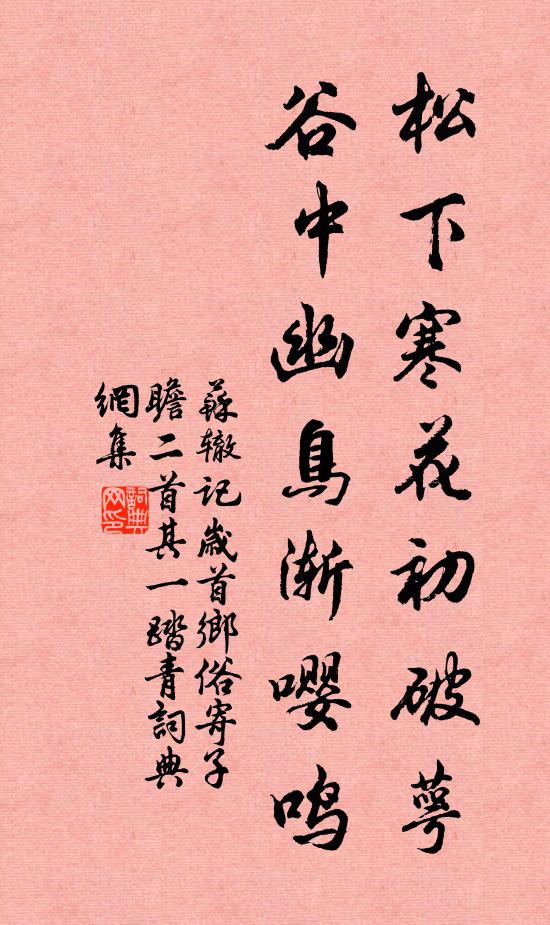 松下寒花初破萼
谷中幽鳥渐嘤鸣
蘇辙記歲首鄉俗寄子
瞻二首其一踏青詞典
網集
詞典
网印